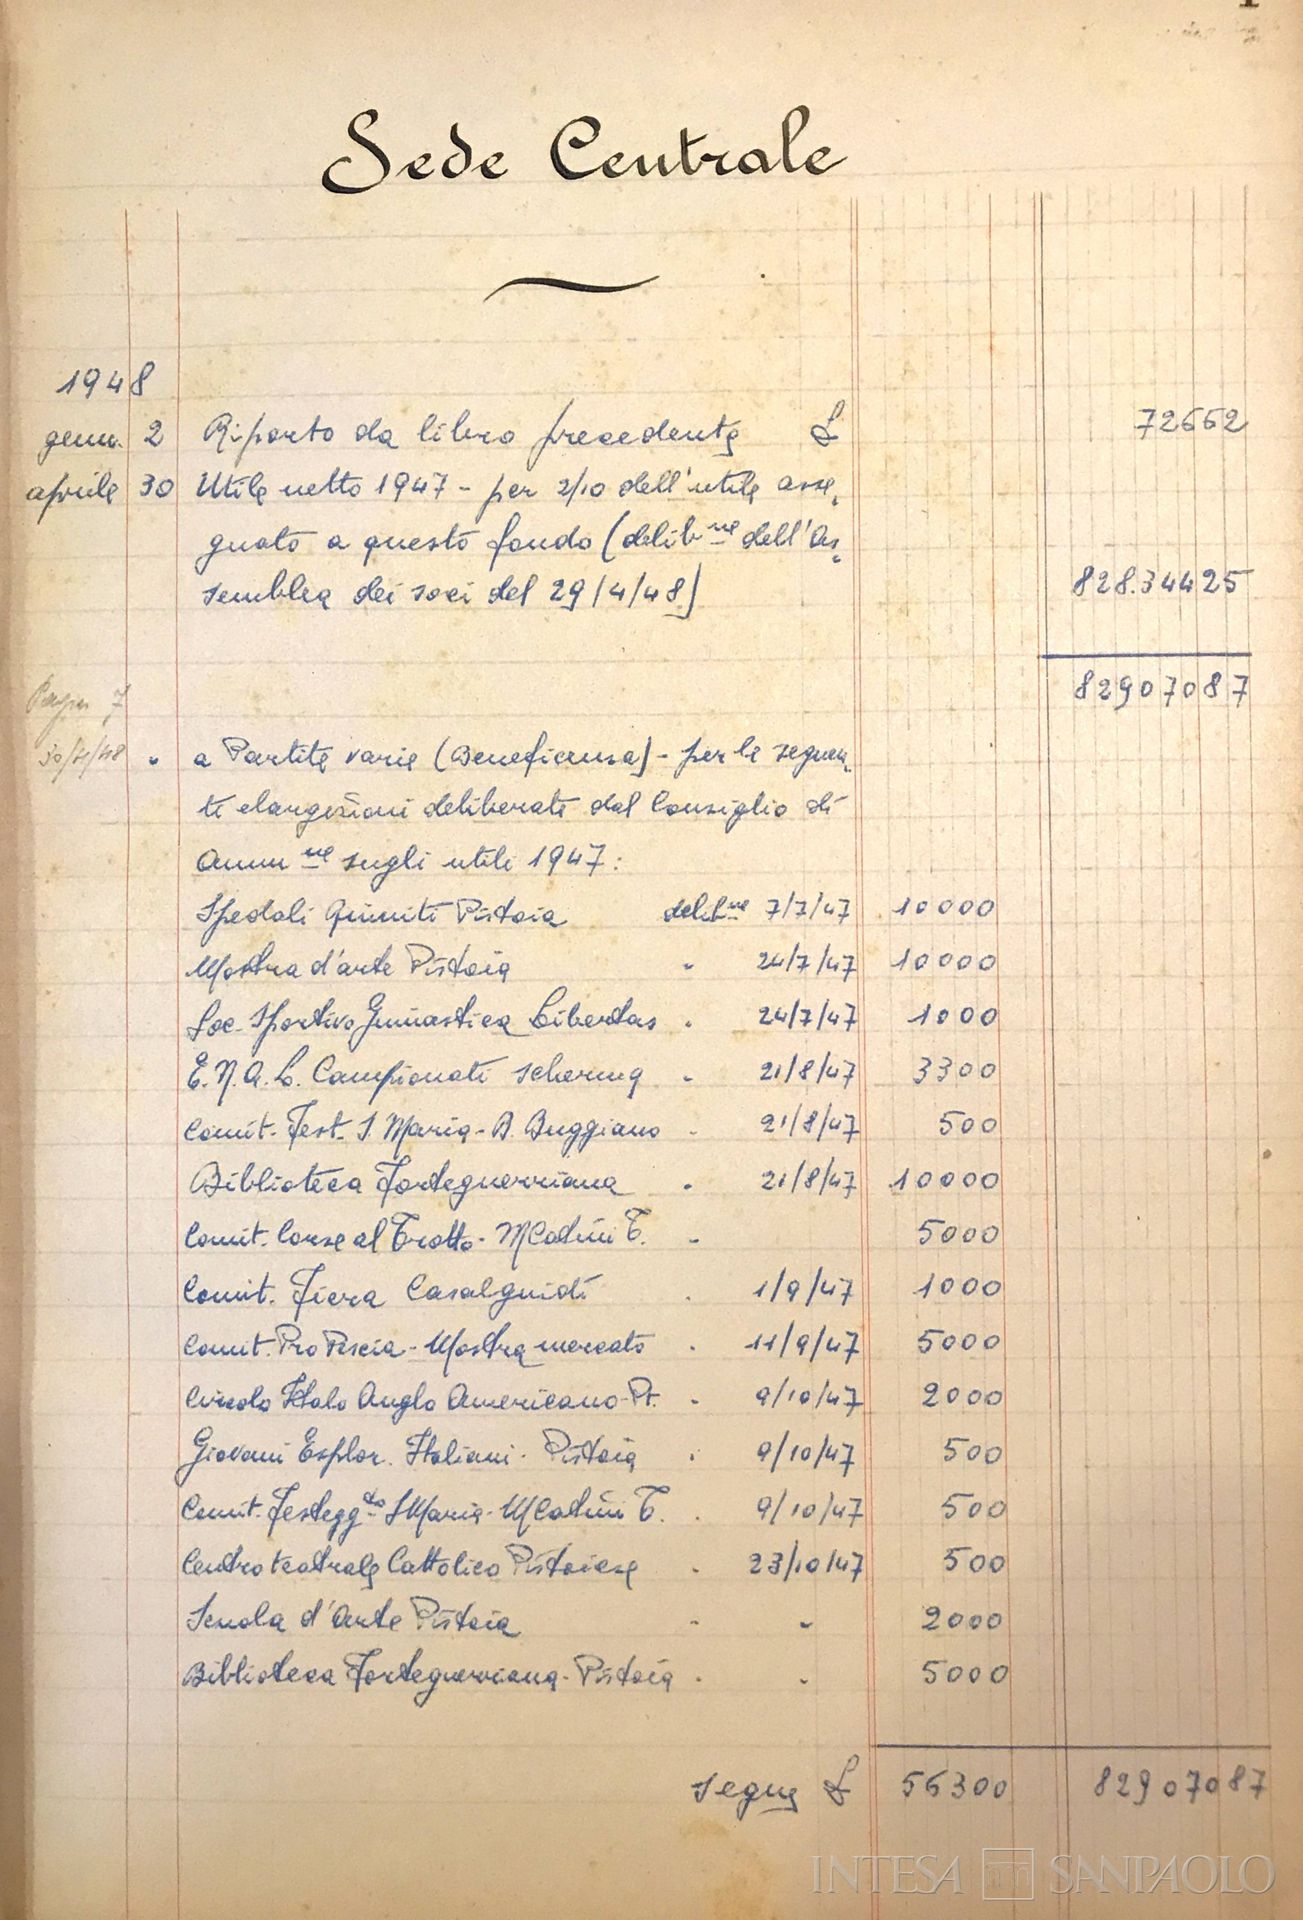 Sede Centrale
1948
genn. 2 Riporto da libro precedente £ 72662
aprile 30 Utile netto 1947 - per 2/10 dell'utile asse,
gnato a questo fondo (delib.ne dell'As,
semblea dei soci del 29/4/48) 828.34425
82907087
Pagu 7
30/4/48 " a Partite varie (Beneficenza) - per le seguen,
ti elargizioni deliberate dal Consiglio di
Amm.ne sugli utili 1947:
Spedali Riuniti Pistoia delib.ne 7/7/47 10000
Mostra d'arte Pistoia " 24/7/47 10000
Soc. Sportivo Ginnastica Libertas " 24/7/47 1000
E.N.A.L. Campionati scherma " 21/8/47 3300
Comit. Fest. S. Maria - B. Buggiano " 21/8/47 500
Biblioteca Forteguerriana " 21/8/47 10000
Comit. Corse al Trotto - MCatini T. " 5000
Comit. Fiera Casalguidi " 1/9/47 1000
Comit. Pro Pescia - Mostra mercato " 11/9/47 5000
Circolo Italo Anglo Americano - Pt. " 9/10/47 2000
Giovani Esplor. Italiani - Pistoia " 9/10/47 500
Comit. Festegg.to S Maria - MCatini T. " 9/10/47 500
Centro teatrale Cattolico Pistoiese " 23/10/47 500
Scuola d'Arte Pistoia " " 2000
Biblioteca Forteguerriana - Pistoia " " 5000
segue £ 56300 82907087
INTESA SANPAOLO